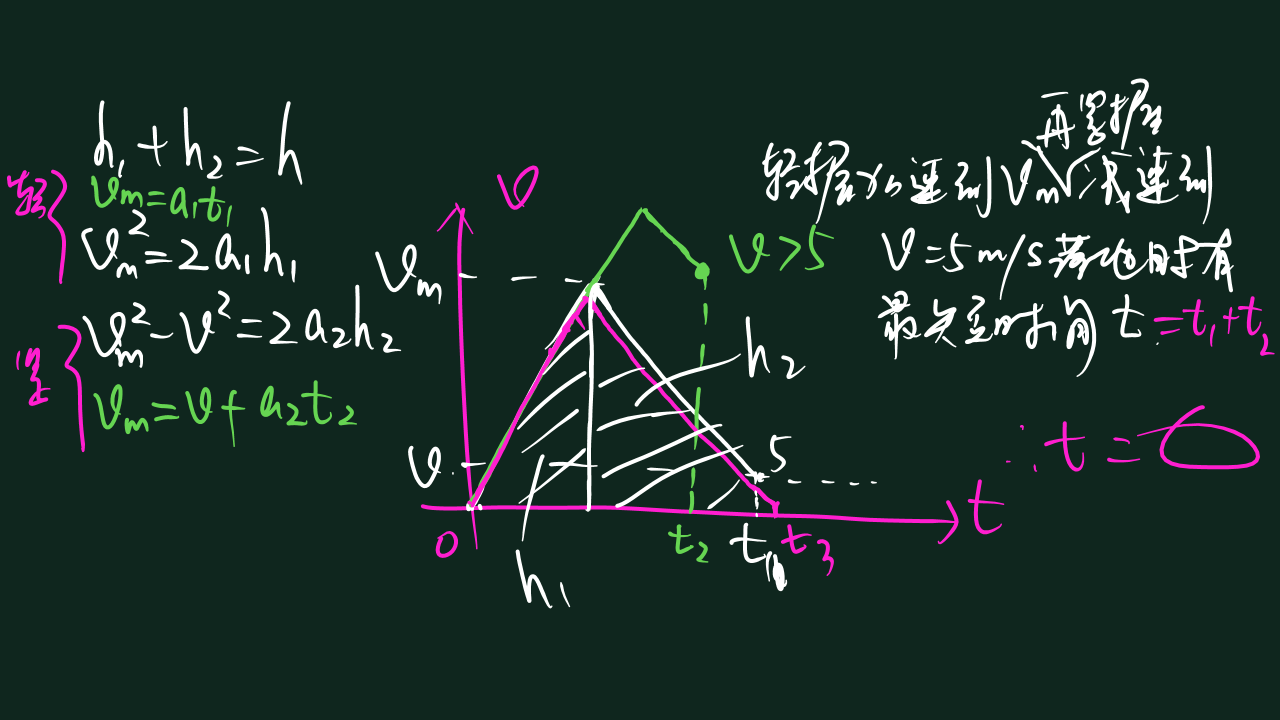 h₁+h₂=h
轻
vm=a₁t₁
vm²=2a₁h₁
vm²-v²=2a₂h₂
vm=v+a₂t₂
v
vm
v
0
h₁
h₂
v>5
5
t₂
t₃
t
再紧握
轻握加速到vm√减速到
v=5m/s落地时有
最短时间t=t₁+t₂
∴t=